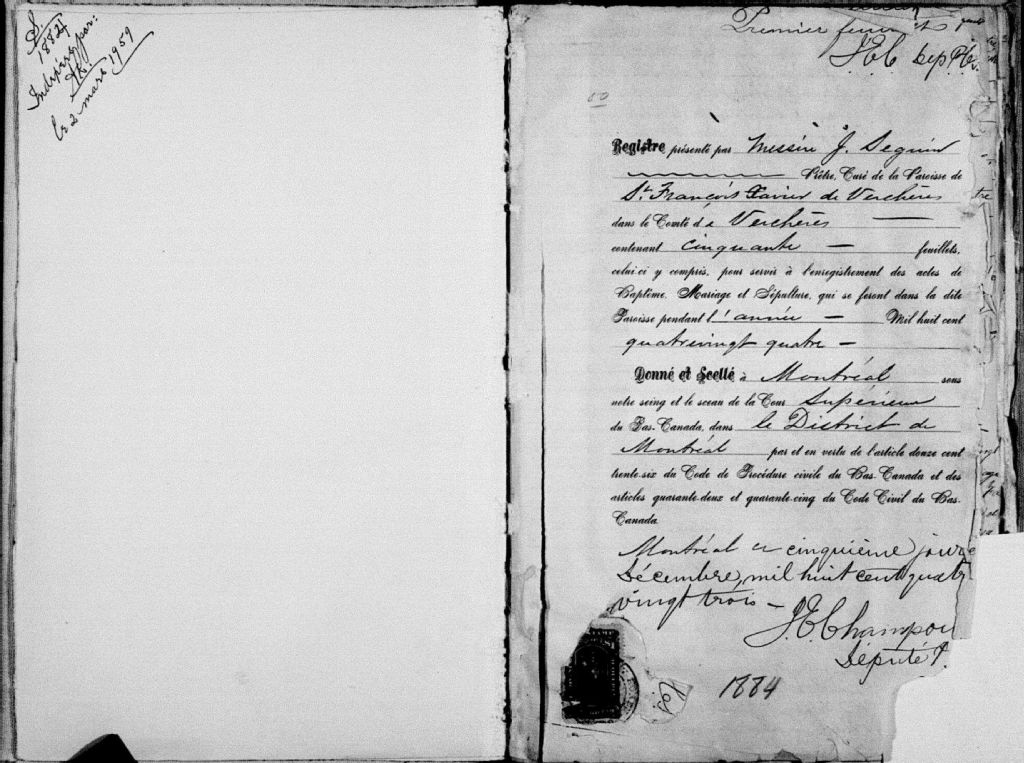 S
1884
Indexé par:
le 2 mars 1959
Premier feuillet
J.E.C. Dep P.
Registre présenté par Messire J. Seguin
Prêtre, Curé de la Paroisse de
St. François Xavier de Verchères
dans le Comté de Verchères
contenant cinquante feuillets,
celui-ci y compris, pour servir à l'enregistrement des actes de
Baptême, Mariage et Sépulture, qui se feront dans la dite
Paroisse pendant l'année Mil huit cent
quatrevingt quatre
Donné et Scellé à Montréal sous
notre seing et le sceau de la Cour Supérieure
du Bas-Canada, dans le District de
Montréal par et en vertu de l'article douze cent
trente-six du Code de Procédure civile du Bas-Canada et des
articles quarante-deux et quarante-cinq du Code Civil du Bas-
Canada.
Montréal ce cinquième jour
Décembre, mil huit cent quatre
vingt trois
J.E. Champou
Député P.
1884